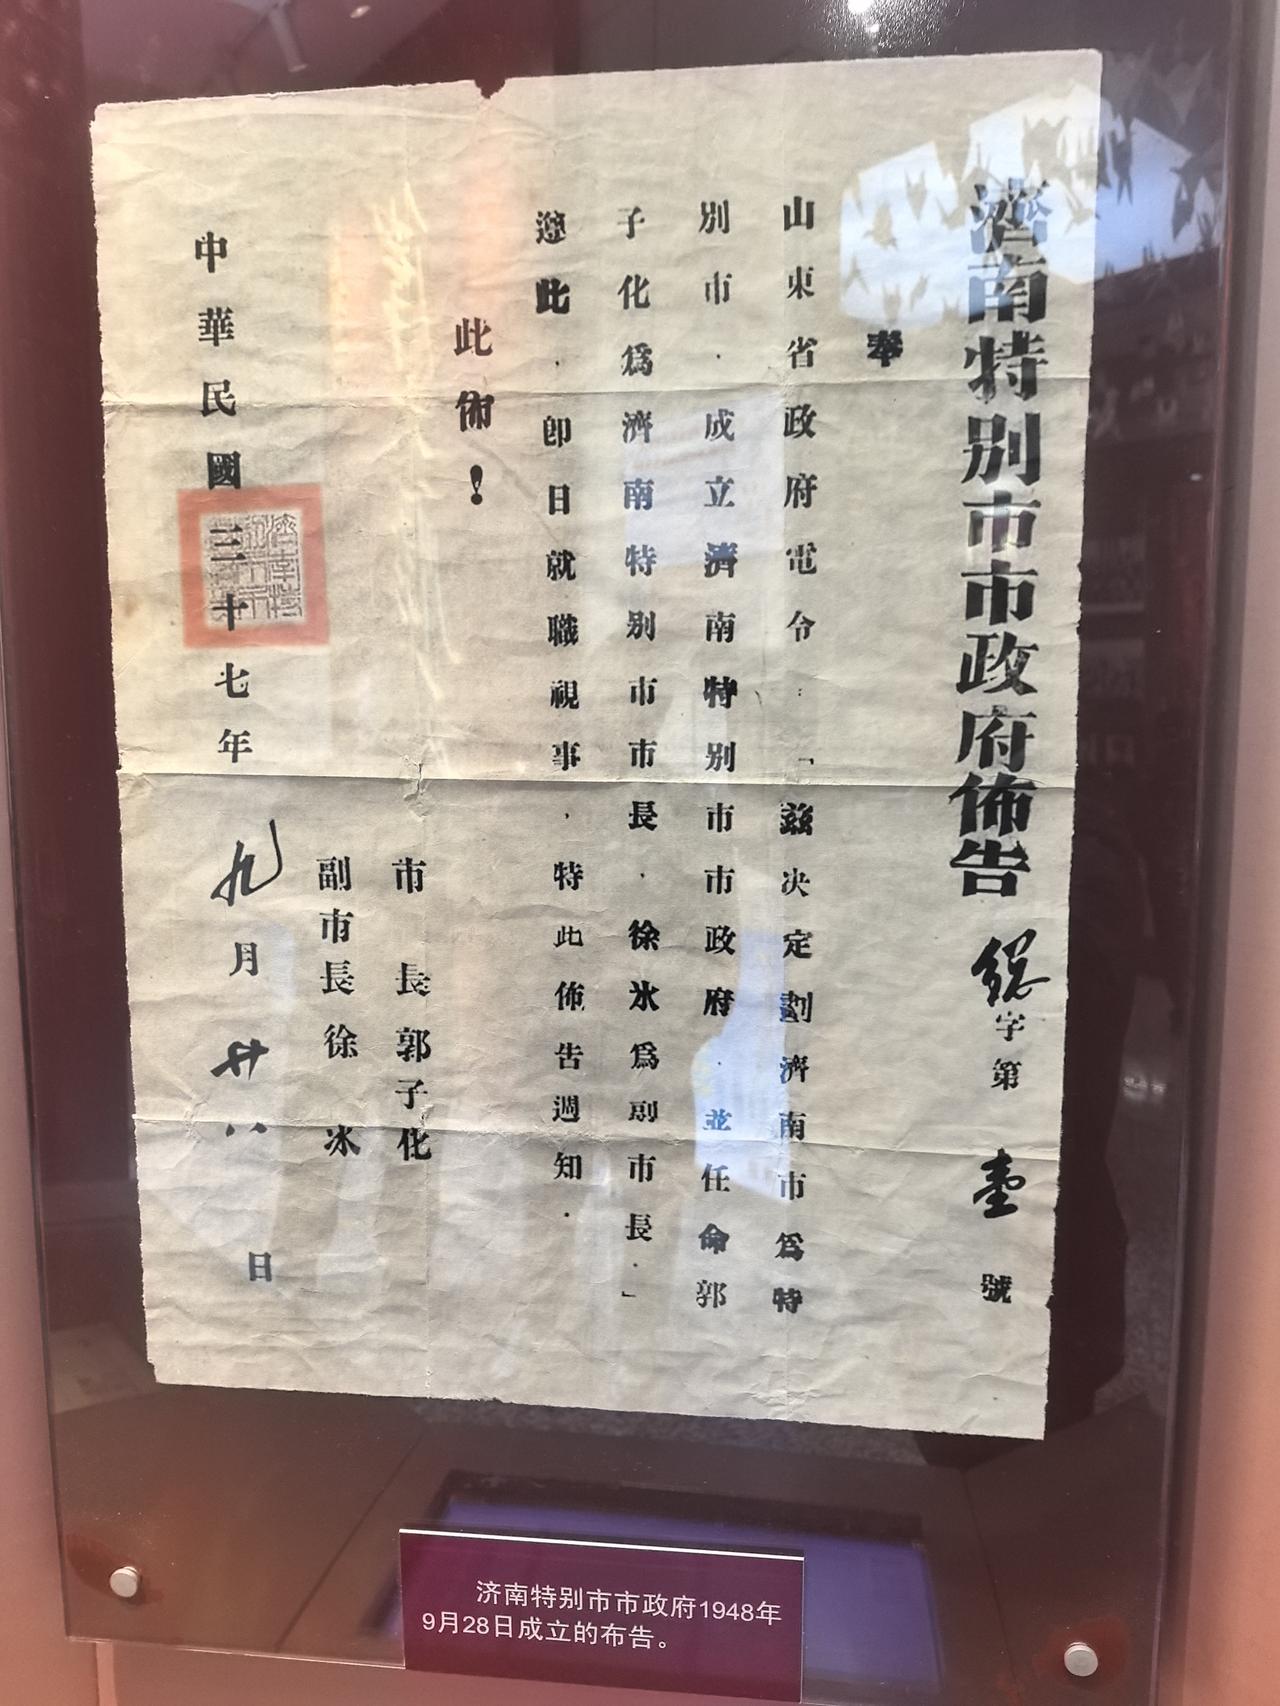 濟南特別市市政府佈告 總字第壹號
奉
山東省政府電令：「茲決定劃濟南市為特
別市．成立濟南特別市市政府．並任命郭
子化爲濟南特別市市長．徐冰爲副市長．」
遵此．卽日就職視事，特此佈告週知．
此佈！
市長郭子化
副市長徐冰
中華民國三十七年九月廿八日
济南特别市市政府1948年
9月28日成立的布告。